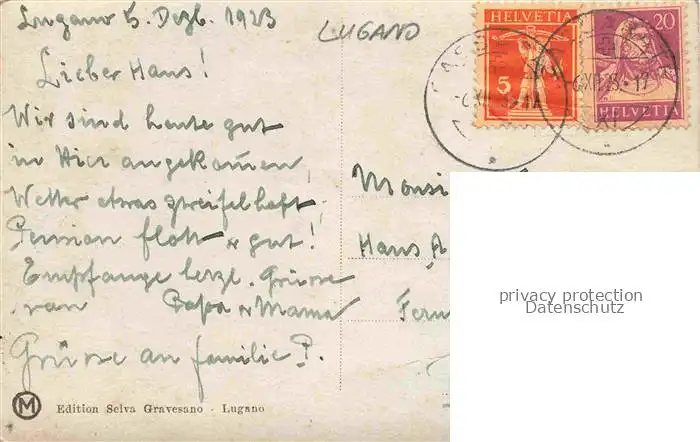 Lugano 5. Dezb. 1923
LUGANO
Lieber Hans!
Wir sind heute gut
in Hier angekommen,
Wetter etwas zweifelhaft.
Pension flott & gut!
Empfange herzl. Grüsse
von Papa & Mama
Grüsse an Familie P.
Edition Selva Gravesano - Lugano
M
HELVETIA
5
20
HELVETIA
Monsi
Hans A
Fern
privacy protection
Datenschutz